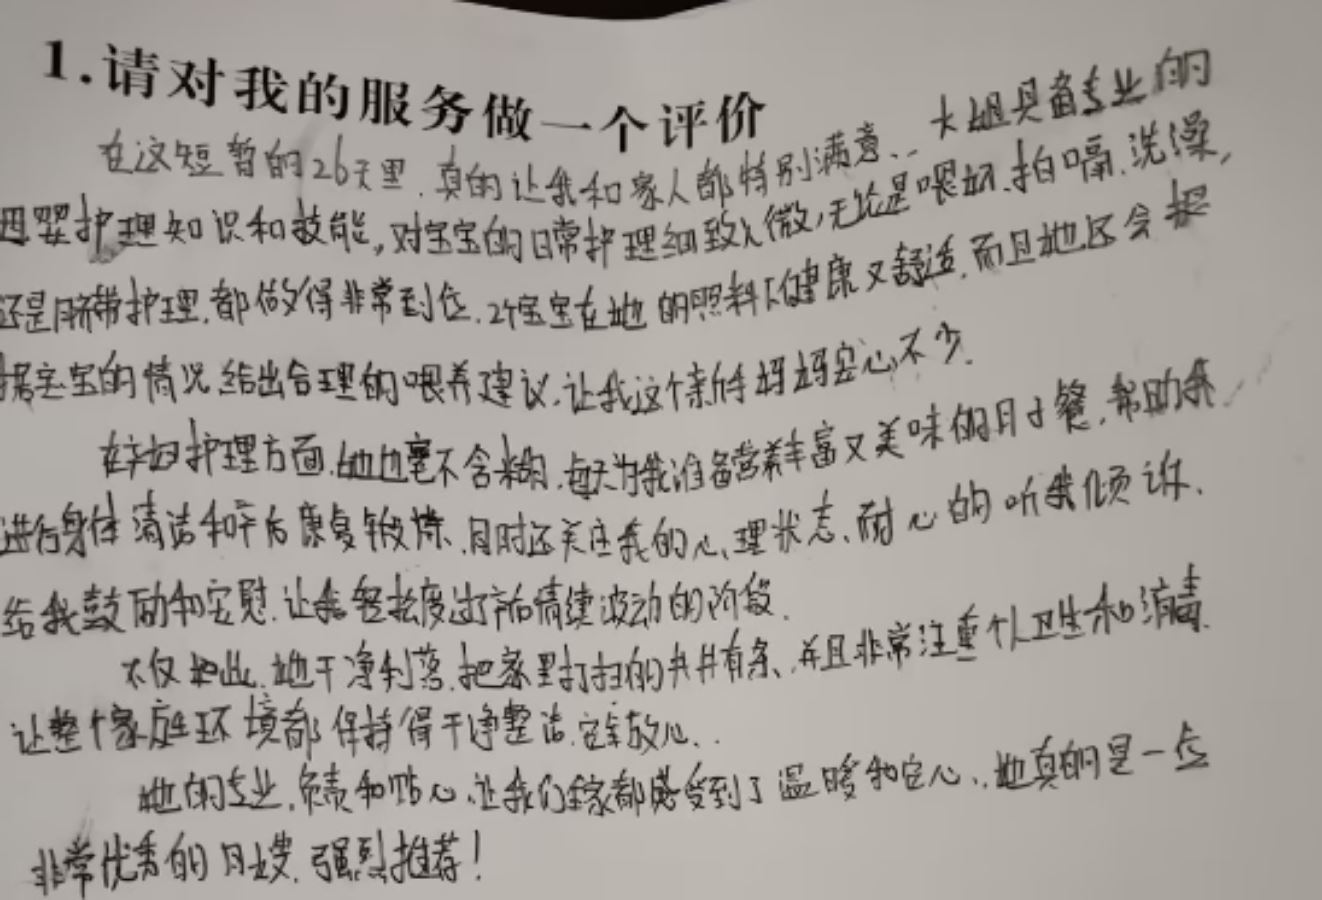 1.请对我的服务做一个评价
在这短暂的26天里,真的让我和家人都特别满意.. 大姐具备专业的
母婴护理知识和技能,对宝宝的日常护理细致入微,无论是喂奶.拍嗝.洗澡,
还是脐带护理.都做得非常到位.2个宝宝在她的照料下健康又舒适.而且她还会根
据宝宝的情况给出合理的喂养建议.让我这个新手妈妈安心不少.
在产妇护理方面.她也毫不含糊.每天为我准备营养丰富又美味的月子餐.帮助我
进行身体清洁和产后康复锻炼.同时还关注我的心理状态、耐心的听我倾诉.
给我鼓励和安慰.让我轻松度过了产后情绪波动的阶段.
不仅如此.她干净利落.把家里打扫的井井有条、并且非常注重个人卫生和消毒.
让整个家庭环境都保持得干净整洁.安全放心..
她的专业.负责和贴心.让我们全家都感受到了温暖和安心..她真的是一位
非常优秀的月嫂.强烈推荐!